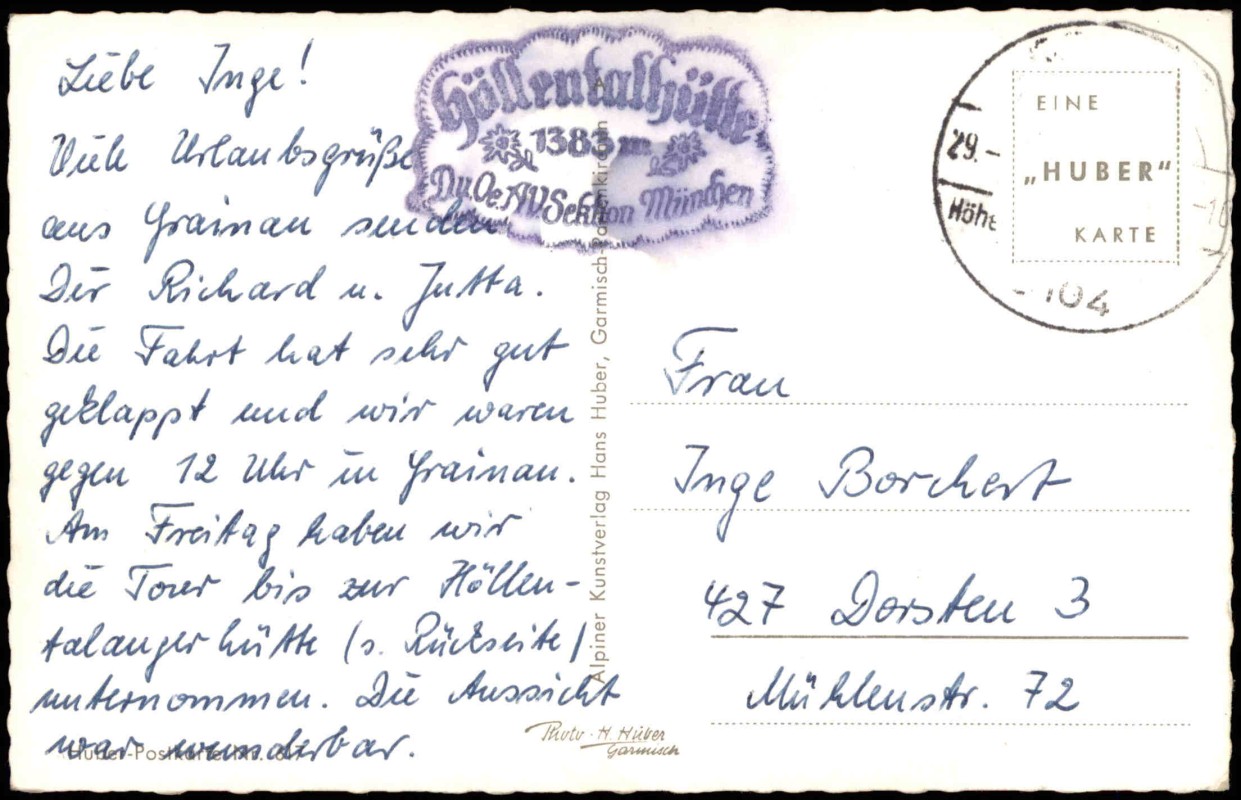 Liebe Inge!
Viele Urlaubsgrüße
aus Grainau senden
Dir Richard u. Jutta.
Die Fahrt hat sehr gut
geklappt und wir waren
gegen 12 Uhr in Grainau.
Am Freitag haben wir
die Tour bis zur Höllen-
talangerhütte (s. Rückseite)
unternommen. Die Aussicht
war wunderbar.
Huber-Postkarte Nr.
Höllentalhütte
1383 m
D.u.Oe.AV Sektion München
Alpiner Kunstverlag Hans Huber, Garmisch-Partenkirchen
Photo-H. Huber
Garmisch
29.-
Höhe
104
EINE
„HUBER"
KARTE
Frau
Inge Borchert
427 Dorsten 3
Mühlenstr. 72